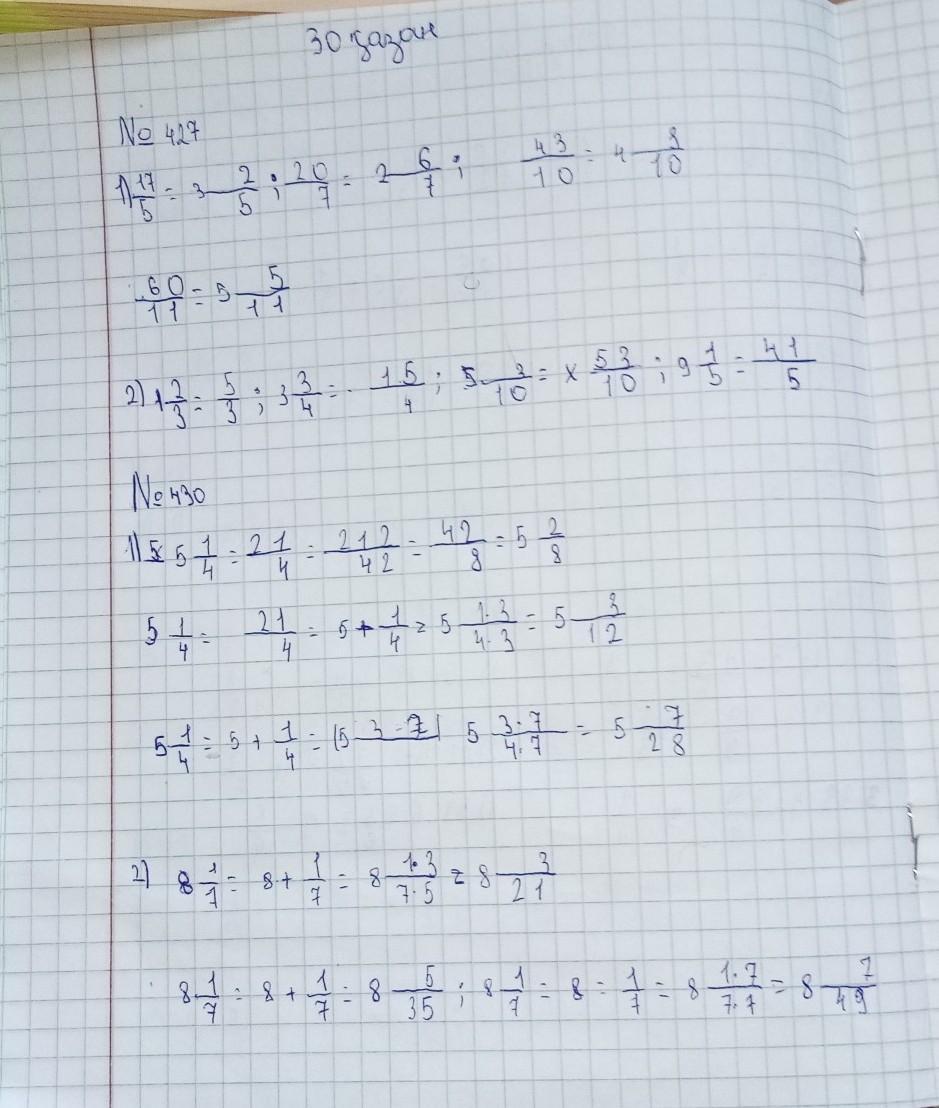 30 қазан
№ 427
1) 17/5 = 3 2/5 ; 20/7 = 2 6/7 ; 43/10 = 4 3/10
60/11 = 5 5/11
2) 1 2/3 = 5/3 ; 3 3/4 = 15/4 ; 5 3/10 = x 53/10 ; 9 1/5 = 41/5
№ 430
1) 5 1/4 = 21/4 = 212/42 = 42/8 = 5 2/8
5 1/4 = 21/4 = 5 + 1/4 = 5 1·3/4·3 = 5 3/12
5 1/4 = 5 + 1/4 = 5 3·7/4·7 = 5 7/28
2) 8 1/7 = 8 + 1/7 = 8 1·3/7·5 = 8 3/21
8 1/7 = 8 + 1/7 = 8 5/35 ; 8 1/7 = 8 = 1/7 = 8 1·7/7·7 = 8 7/49